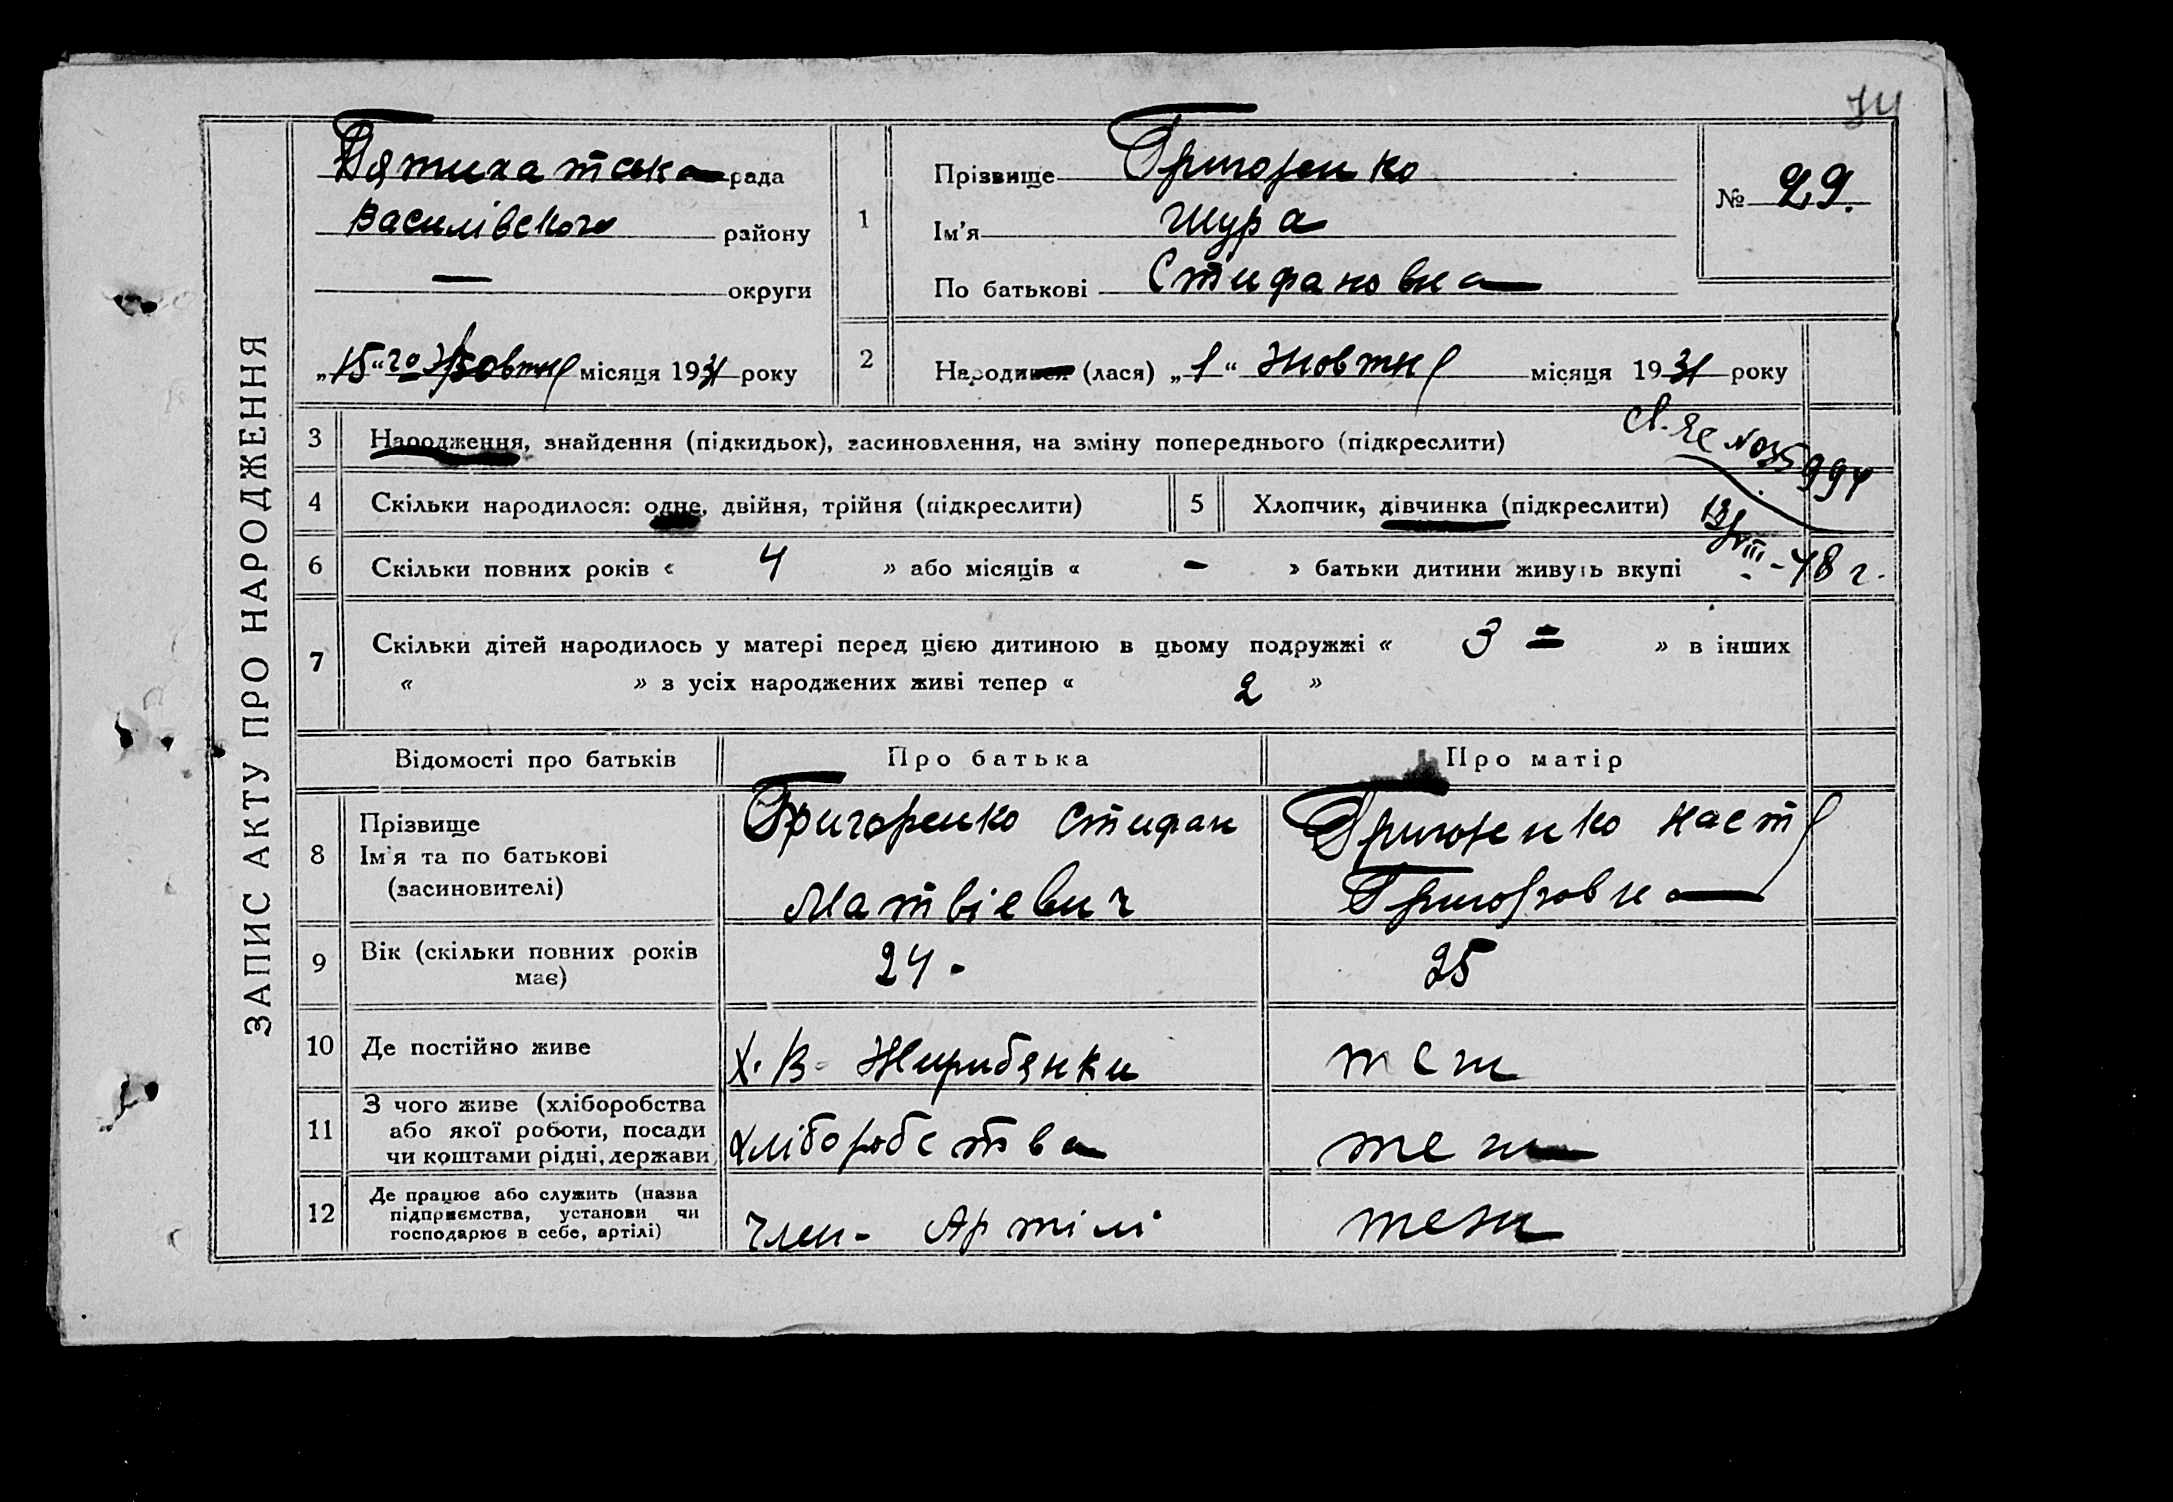 ЗАПИС АКТУ ПРО НАРОДЖЕННЯ
Пятихатська рада
Василівского району
— округи
„15“ го Жовтня місяця 1931 року
1
Прізвище Григоренко
Ім'я Шура
По батькові Стифановна
№ 29.
2
Народився (лася) „1“ Жовтня місяця 1931 року
3 Народження, знайдення (підкидьок), засиновлення, на зміну попереднього (підкреслити)
4 Скільки народилося: одне, двійня, трійня (підкреслити)
5 Хлопчик, дівчинка (підкреслити)
6 Скільки повних років « 4 » або місяців « - » батьки дитини живуть вкупі
VIII-48 г.
7 Скільки дітей народилось у матері перед цією дитиною в цьому подружжі « 3 = » в інших
« » з усіх народжених живі тепер « 2 »
Відомості про батьків Про батька Про матір
8 Прізвище
Ім'я та по батькові
(засиновителі)
Григоренко Стифан
Матвіевич
Григоренко Настя
Григоровна
9 Вік (скільки повних років
має)
24. 25
10 Де постійно живе Х. В- Жирибянки теж
11 З чого живе (хліборобства
або якої роботи, посади
чи коштами рідні, держави)
хліборобства теж
12 Де працює або служить (назва
підприємства, установи чи
господарює в себе, артілі)
член- Артілі теж